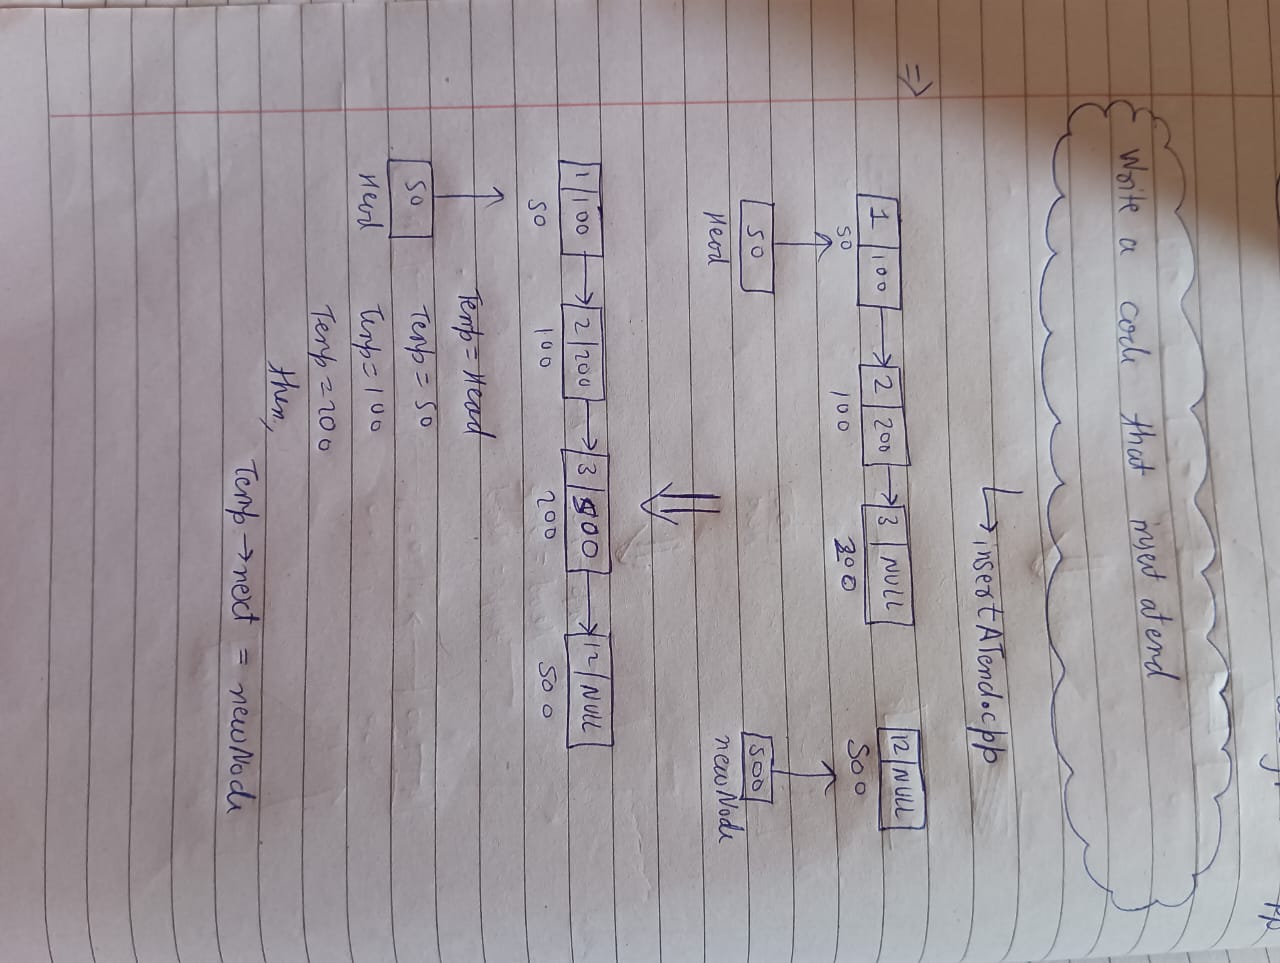 Write a code that insert at end
↳ insertATend.cpp
⇒
1 | 100 → 2 | 200 → 3 | NULL 12 | NULL
50 100 200 500
50 500
Head newNode
⇓
1 | 100 → 2 | 200 → 3 | 500 → 12 | NULL
50 100 200 500
Temp = Head
50 Temp = 50
Head Temp = 100
Temp = 200
then,
Temp → next = newNode